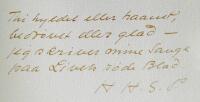 Tri hyldet eller haanet,
bedrøvet eller glad —
jeg skriver mine Sange
paa Livets røde Blad
H H S P